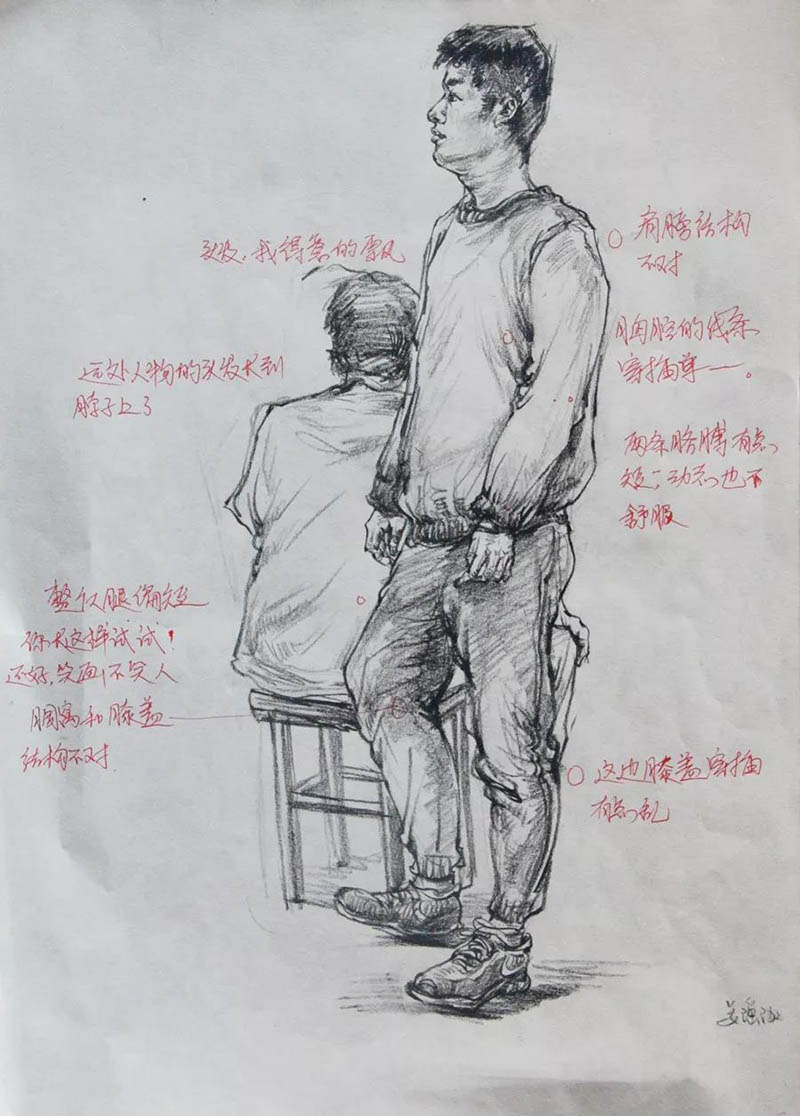 头发,我得意的雪风
远处人物的头发长到
脖子上了
整个人腿偏短
你长这样试试!
还好,笑画不笑人
腘窝和膝盖
结构不对
肩膀结构
不对
胸腔的线条
穿插草一一。
两条胳膊有点
短;动态也不
舒服
这边膝盖穿插
有点乱